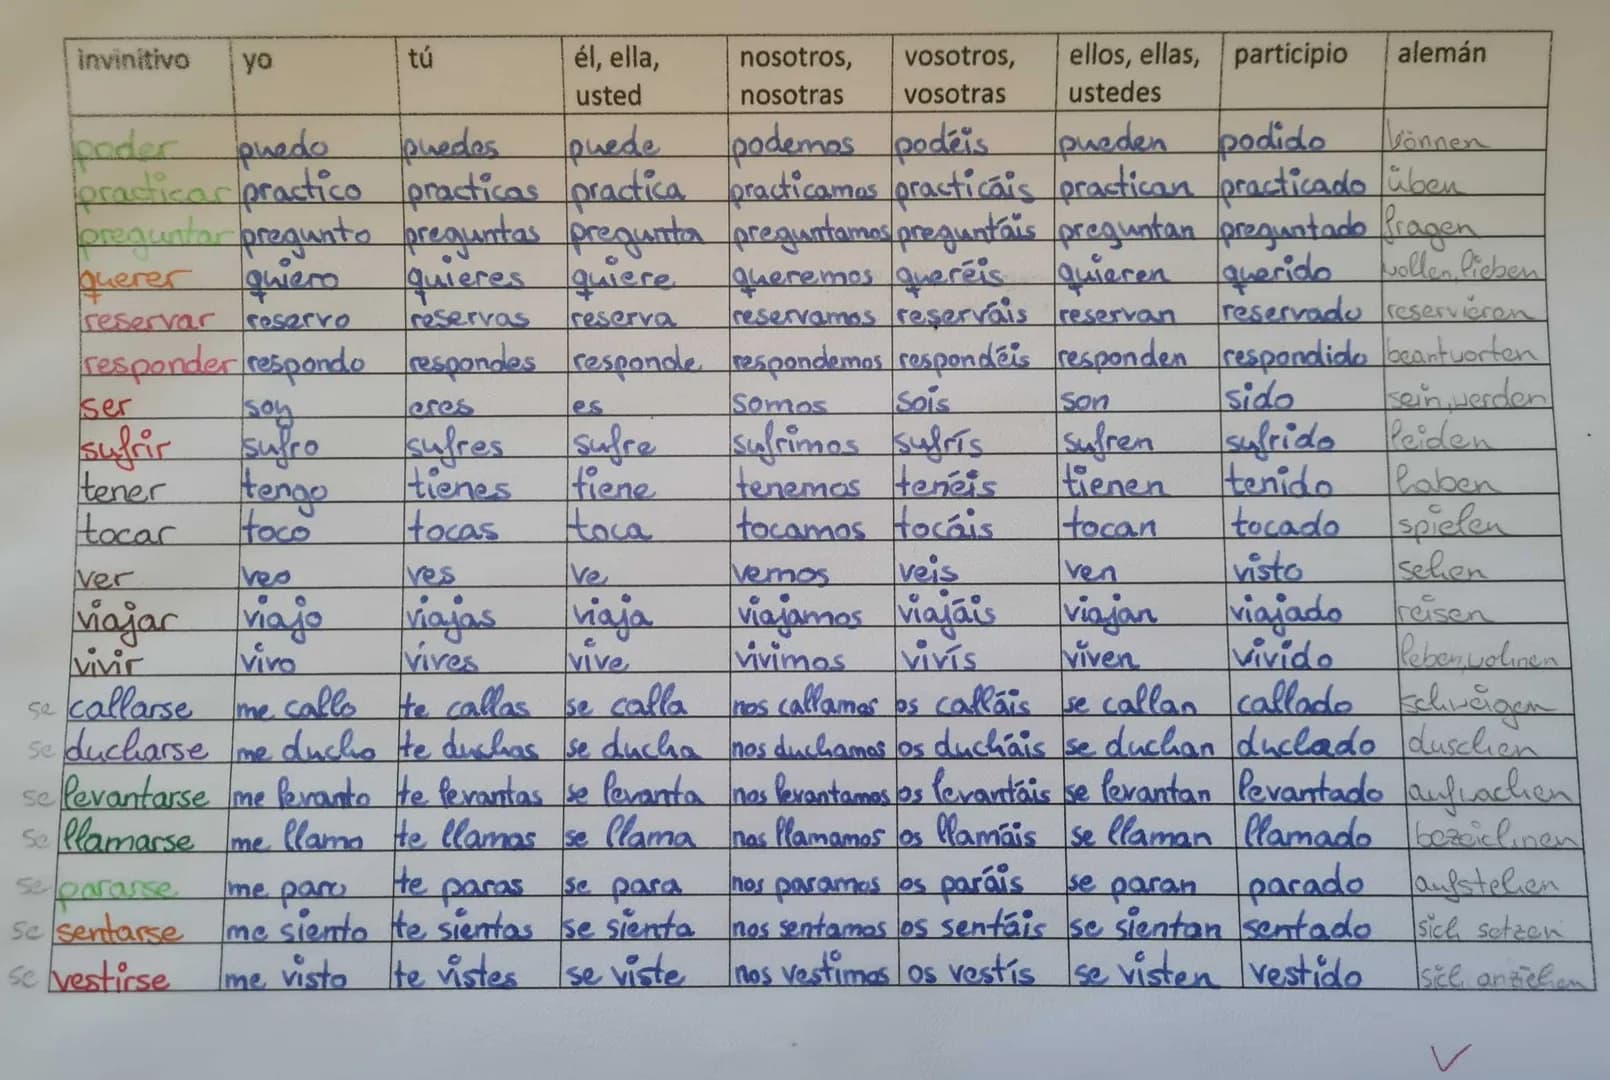 invinitivo yo tú él, ella, usted nosotros, nosotras vosotros, vosotras ellos, ellas, ustedes participio alemán
poder puedo puedes puede podemos podéis pueden podido können
practicar practico practicas practica practicamos practicáis practican practicado üben
preguntar pregunto preguntas pregunta preguntamos preguntáis preguntan preguntado fragen
querer quiero quieres quiere queremos queréis quieren querido wollen, lieben
reservar reservo reservas reserva reservamos reserváis reservan reservado reservieren
responder respondo respondes responde respondemos respondéis responden respondido beantworten
ser soy eres es somos sois son sido sein, werden
sufrir sufro sufres sufre sufrimos sufrís sufren sufrido leiden
tener tengo tienes tiene tenemos tenéis tienen tenido haben
tocar toco tocas toca tocamos tocáis tocan tocado spielen
ver veo ves ve vemos veis ven visto sehen
viajar viajo viajas viaja viajamos viajáis viajan viajado reisen
vivir vivo vives vive vivimos vivís viven vivido leben, wohnen
se callarse me callo te callas se calla nos callamos os calláis se callan callado schweigen
se ducharse me ducho te duchas se ducha nos duchamos os ducháis se duchan duchado duschen
se levantarse me levanto te levantas se levanta nos levantamos os levantáis se levantan levantado aufwachen
se llamarse me llamo te llamas se llama nos llamamos os llamáis se llaman llamado bezeichnen
se pararse me paro te paras se para nos paramos os paráis se paran parado aufstehen
se sentarse me siento te sientas se sienta nos sentamos os sentáis se sientan sentado sich setzen
se vestirse me visto te vistes se viste nos vestimos os vestís se visten vestido sich anziehen